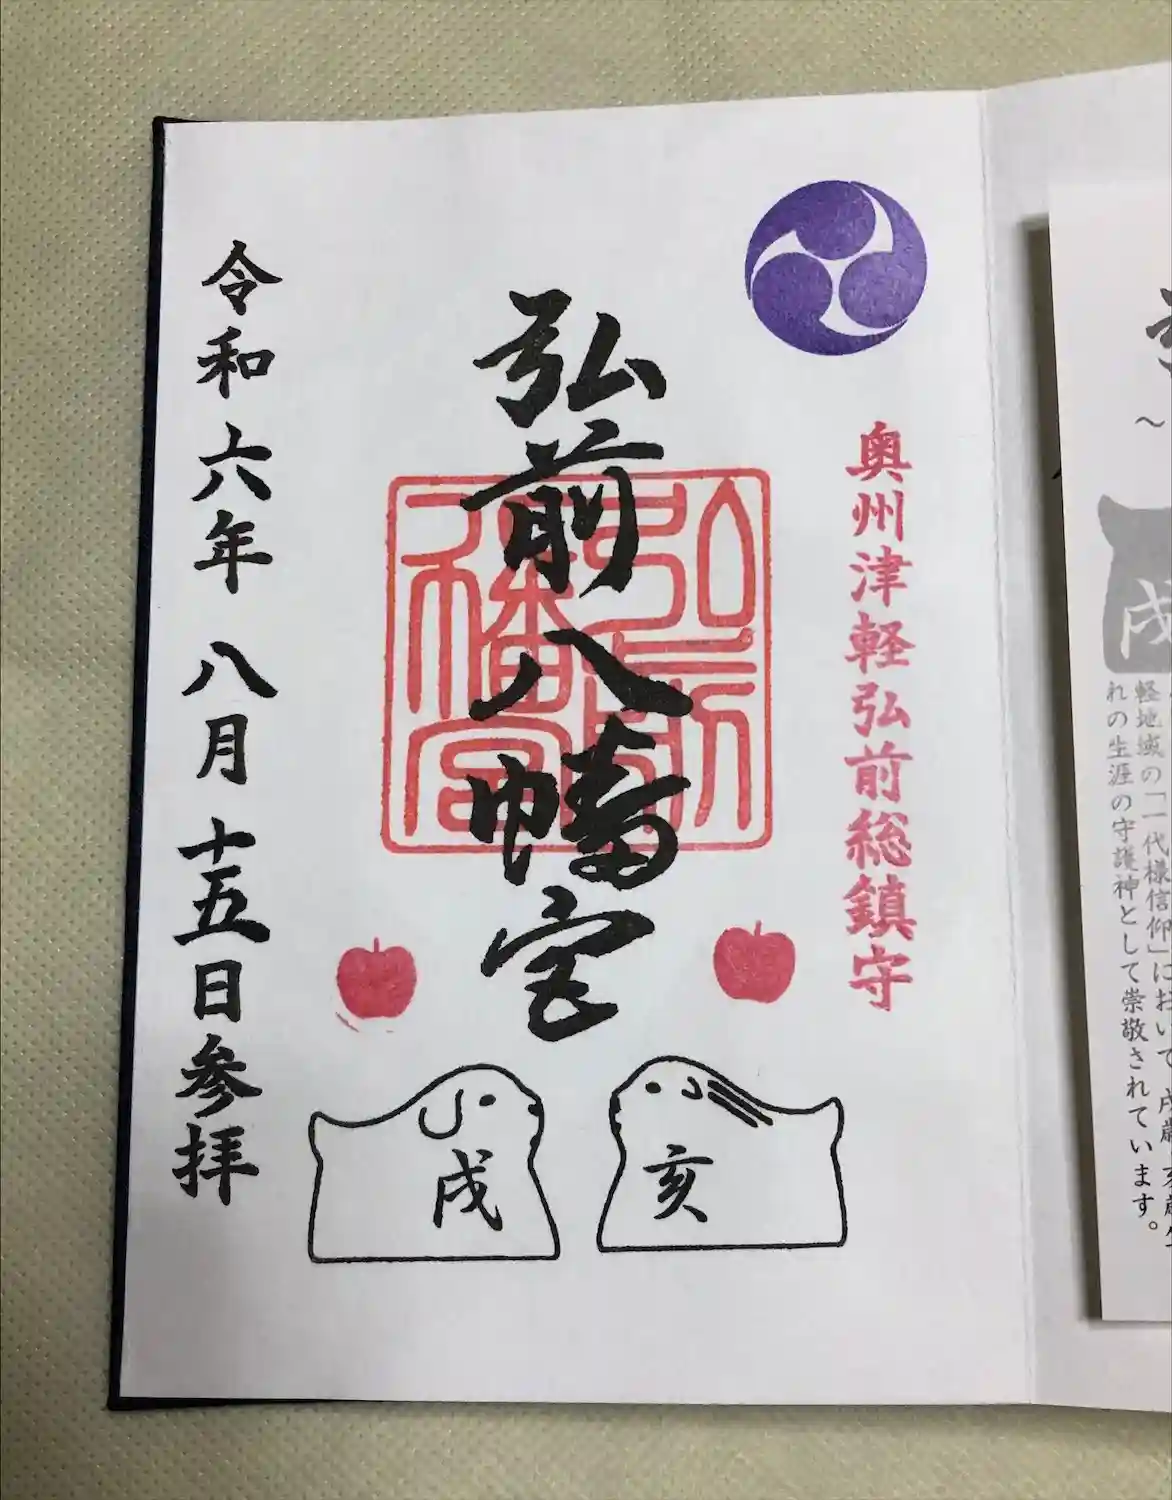 奥州津軽弘前総鎮守
弘前八幡宮
弘前八幡宮
令和六年 八月 十五日参拝
戌
亥
～
戌
軽地域の「一代様信仰」において、戌歳・亥歳生
れの生涯の守護神として崇敬されています。